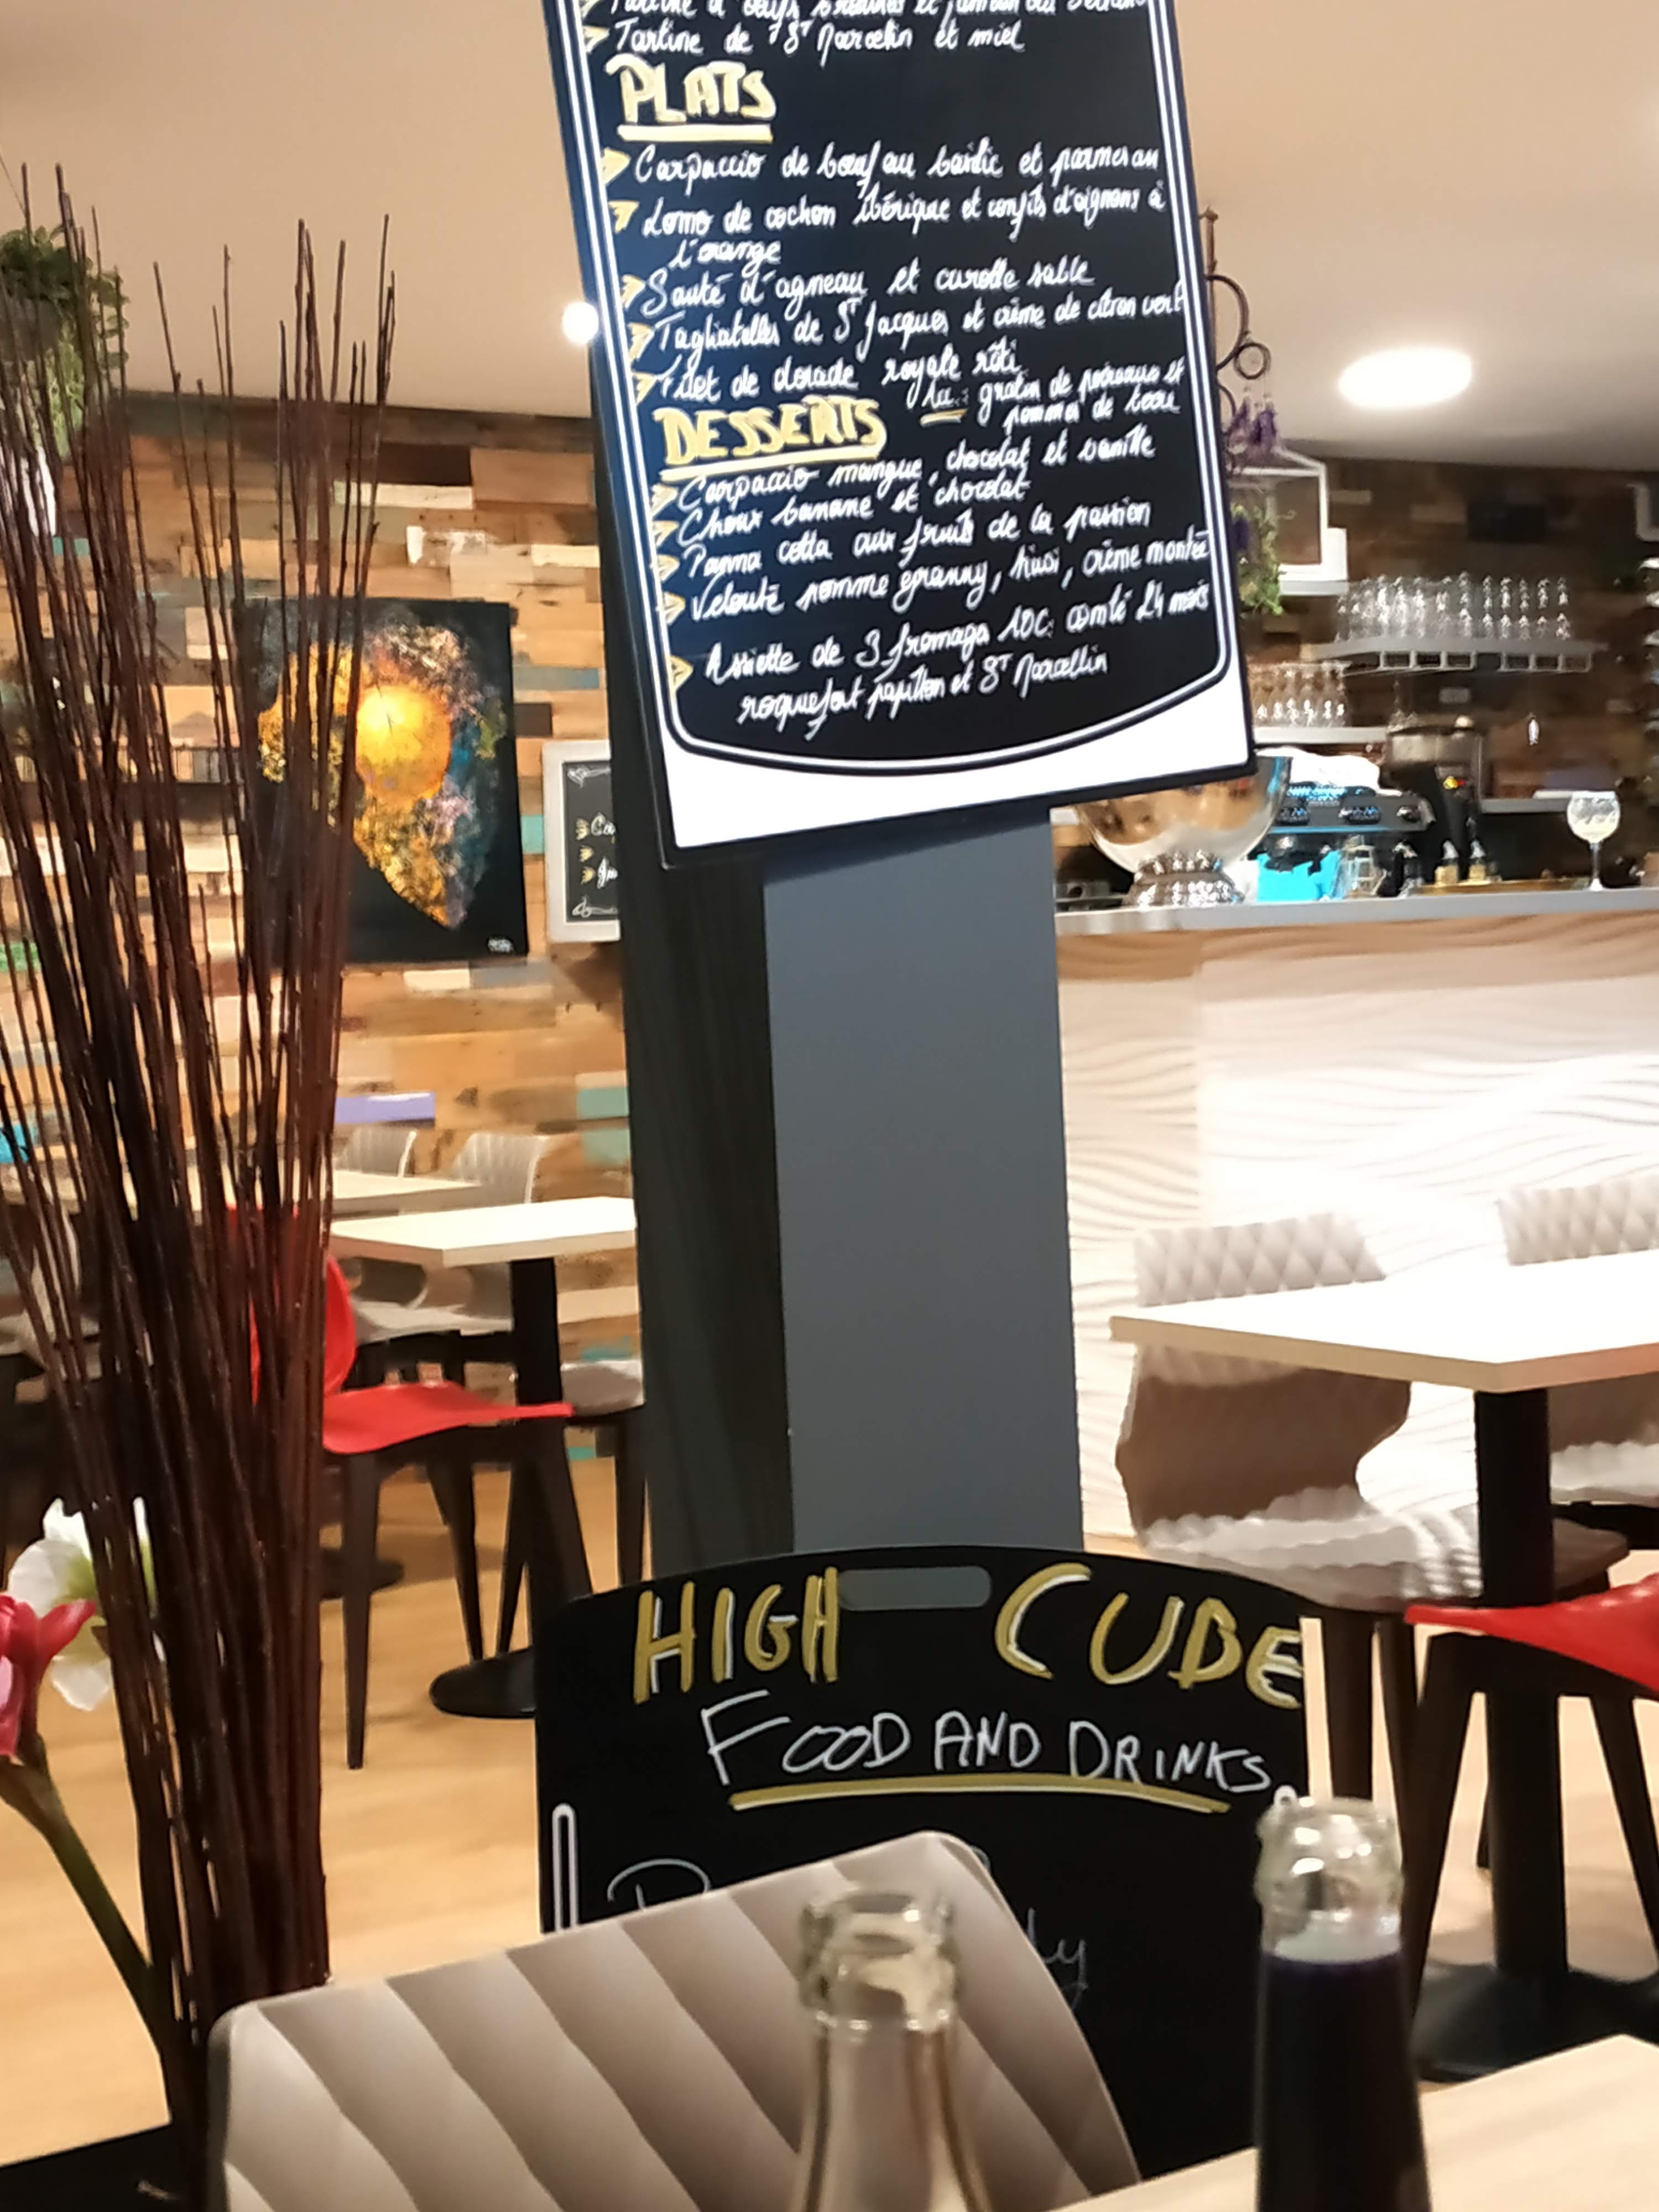 Tartine d'œufs brouillés et jambon du
Tartine de St Marcelin et miel
PLATS
Carpaccio de bœuf au basilic et parmesan
Lomo de cochon ibérique et confits d'oignons à
l'orange
Sauté d'agneau et carotte sable
Tagliatelles de St Jacques et crème de citron vert
Filet de dorade royale rôti
gratin de poireaux et
pommes de terre
DESSERTS
Carpaccio mangue, chocolat et vanille
Choux banane et chocolat
Panna cotta aux fruits de la passion
Velouté pomme granny, kiwi, crème montée
Assiette de 3 fromages AOC: comté 24 mois
roquefort papillon et St Marcellin
HIGH CUBE
FOOD AND DRINKS